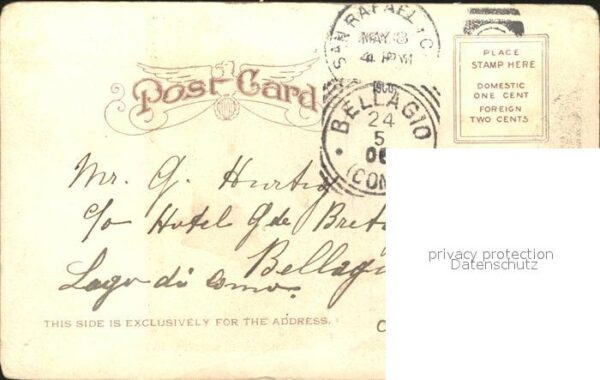 SAN RAFAEL C
MAY 3
4 PM
1906
Post Card
PLACE
STAMP HERE
DOMESTIC
ONE CENT
FOREIGN
TWO CENTS
BELLAGIO
24
5
06
(COM
Mr. G.
c/o Hotel Gde Bret
Bellag
Lago di Como.
THIS SIDE IS EXCLUSIVELY FOR THE ADDRESS.
privacy protection
Datenschutz